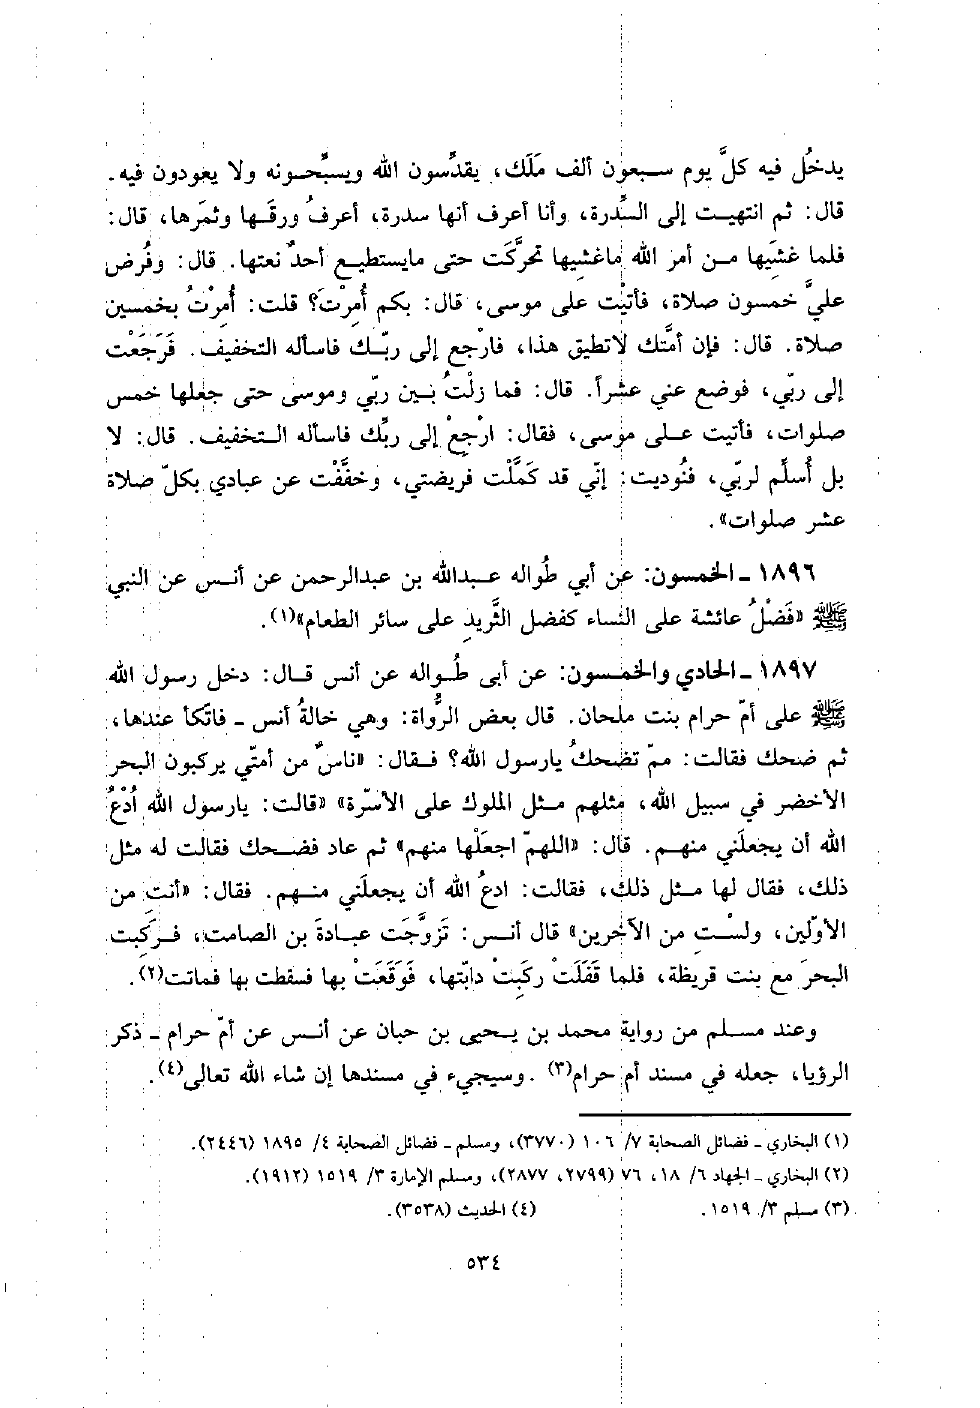 يدخُل فيه كلَّ يوم سبعون ألف مَلَك، يقدِّسون الله ويسبِّحونه ولا يعودون فيه.
قال: ثم انتهيت إلى السِّدرة، وأنا أعرف أنها سدرة، أعرفُ ورقَها وثمَرها، قال:
فلما غشيَها من أمر الله ماغشيها تحرَّكَت حتى مايستطيع أحدٌ نعتها. قال: وفُرض
عليَّ خمسون صلاة، فأتَيْت على موسى، قال: بكم أُمِرْتَ؟ قلت: أُمِرْتُ بخمسين
صلاة. قال: فإن أمَّتك لاتطيق هذا، فارجع إلى ربّك فاسأله التخفيف. فَرَجَعْت
إلى ربّي، فوضع عني عشراً. قال: فما زلْتُ بين ربّي وموسى حتى جعلها خمس
صلوات، فأتيت على موسى، فقال: ارْجِعْ إلى ربِّك فاسأله التخفيف. قال: لا
بل أُسلِّم لربّي، فنُوديت: إنّي قد كَمَّلْت فريضتي، وخفَّفْت عن عبادي بكلّ صلاة
عشر صلوات».
١٨٩٦ ـ الخمسون: عن أبي طُواله عبدالله بن عبدالرحمن عن أنس عن النبي
ﷺ «فَضْلُ عائشة على النساء كفضل الثَّريد على سائر الطعام»(١).
١٨٩٧ ـ الحادي والخمسون: عن أبى طُواله عن أنس قال: دخل رسول الله
ﷺ على أمّ حرام بنت ملحان. قال بعض الرُّواة: وهي خالةُ أنس ـ فاتّكأ عندها،
ثم ضحك فقالت: ممّ تضحكُ يارسول الله؟ فقال: «ناسٌ من أمتّي يركبون البحر
الأخضر في سبيل الله، مثلهم مثل الملوك على الأسّرة» «قالت: يارسول الله أُدْعُ
الله أن يجعلَني منهم. قال: «اللهمّ اجعلْها منهم» ثم عاد فضحك فقالت له مثل
ذلك، فقال لها مثل ذلك، فقالت: ادعُ الله أن يجعلَني منهم. فقال: «أنتِ من
الأوّلين، ولسْتِ من الآخرين» قال أنس: تَزوَّجَت عبادةَ بن الصامت، فركَبِت
البحرَ مع بنت قريظة، فلما قَفَلَتْ ركِبَتْ دابّتها، فَوَقَعَتْ بها فسقطت بها فماتت(٢).
وعند مسلم من رواية محمد بن يحيى بن حبان عن أنس عن أمّ حرام ـ ذكر
الرؤيا، جعله في مسند أم حرام(٣). وسيجيء في مسندها إن شاء الله تعالى(٤).
(١) البخاري ـ فضائل الصحابة ٧/ ١٠٦ (٣٧٧٠)، ومسلم ـ فضائل الصحابة ٤/ ١٨٩٥ (٢٤٤٦).
(٢) البخاري ـ الجهاد ٦/ ١٨، ٧٦ (٢٧٩٩، ٢٨٧٧)، ومسلم الإمارة ٣/ ١٥١٩ (١٩١٢).
(٣) مسلم ٣/ ١٥١٩. (٤) الحديث (٣٥٣٨).
٥٣٤